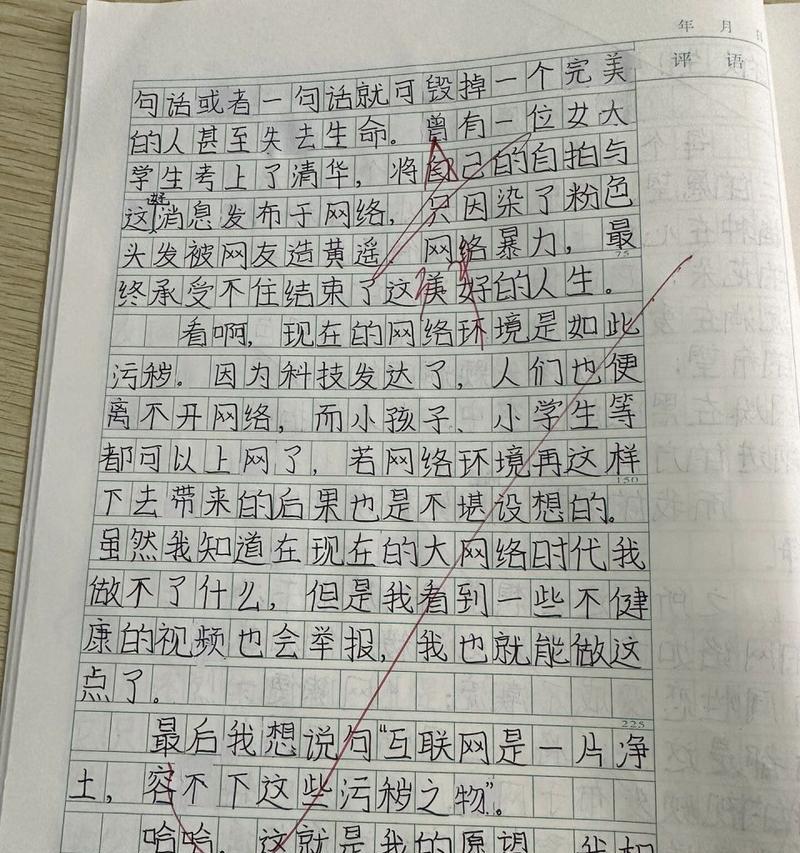 年 月 日
评 语
句话或者一句话就可毁掉一个完美
的人甚至失去生命。曾有一位女大
学生考上了清华，将自己的自拍与
这好消息发布于网络，只因染了粉色
头发被网友造黄遥，网络暴力，最
75
终承受不住结束了这美好的人生。
看啊，现在的网络环境是如此
污秽。因为科技发达了，人们也便
离不开网络，而小孩子、小学生等
都可以上网了，若网络环境再这样
150
下去带来的后果也是不堪设想的。
虽然我知道在现在的大网络时代我
做不了什么，但是我看到一些不健
康的视频也会举报，我也就能做这
点了。
225
最后我想说句“互联网是一片净
土，容不下这些污秽之物”。
哈哈，这就是我的愿望，我相